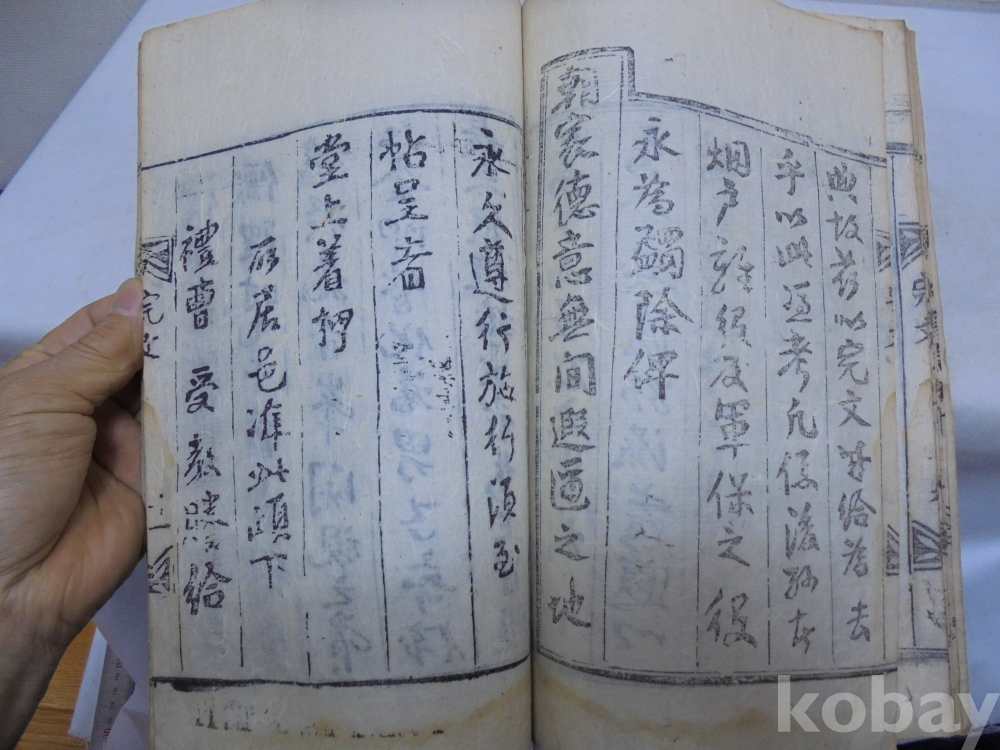 典故玆以完文成給爲去
乎以此憑考凡係後孫
烟戶雜役及軍保之役
永爲蠲除俾
朝家德意無間遐邇之地
永久遵行施行須至
帖呈者
堂上着押
所居邑準此頉下
禮曹 受教謄給
完文
kobay